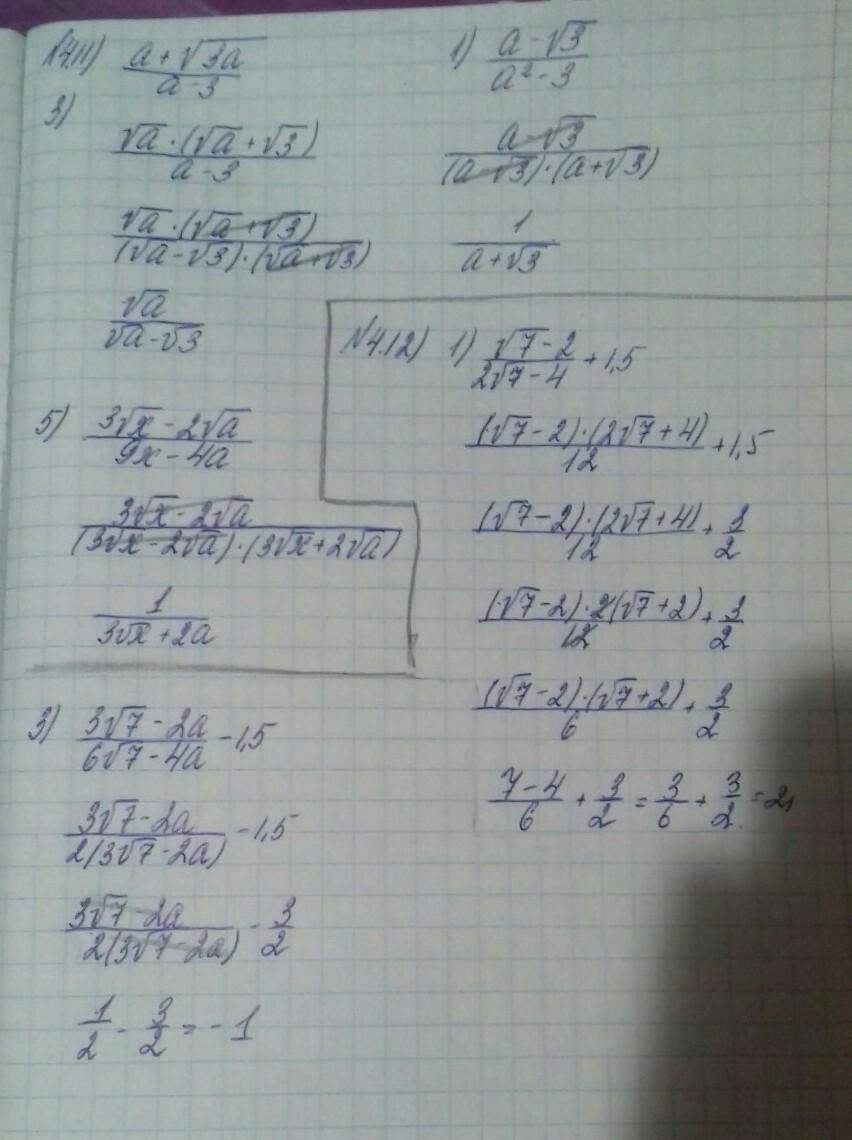 N4.11) (a + √3a)/(a - 3)
1) (a - √3)/(a² - 3)
3)
(√a · (√a + √3))/(a - 3)
(a - √3)/((a - √3) · (a + √3))
(√a · (√a + √3))/((√a - √3) · (√a + √3))
1/(a + √3)
√a/(√a - √3)
5) (3√x - 2√a)/(9x - 4a)
(3√x - 2√a)/((3√x - 2√a) · (3√x + 2√a))
1/(3√x + 2a)
N4.12) 1) (√7 - 2)/(2√7 - 4) + 1,5
((√7 - 2) · (2√7 + 4))/12 + 1,5
((√7 - 2) · (2√7 + 4))/12 + 3/2
((√7 - 2) · 2(√7 + 2))/12 + 3/2
((√7 - 2) · (√7 + 2))/6 + 3/2
(7 - 4)/6 + 3/2 = 3/6 + 3/2 = 2
3) (3√7 - 2a)/(6√7 - 4a) - 1,5
(3√7 - 2a)/(2(3√7 - 2a)) - 1,5
(3√7 - 2a)/(2(3√7 - 2a)) - 3/2
1/2 - 3/2 = - 1